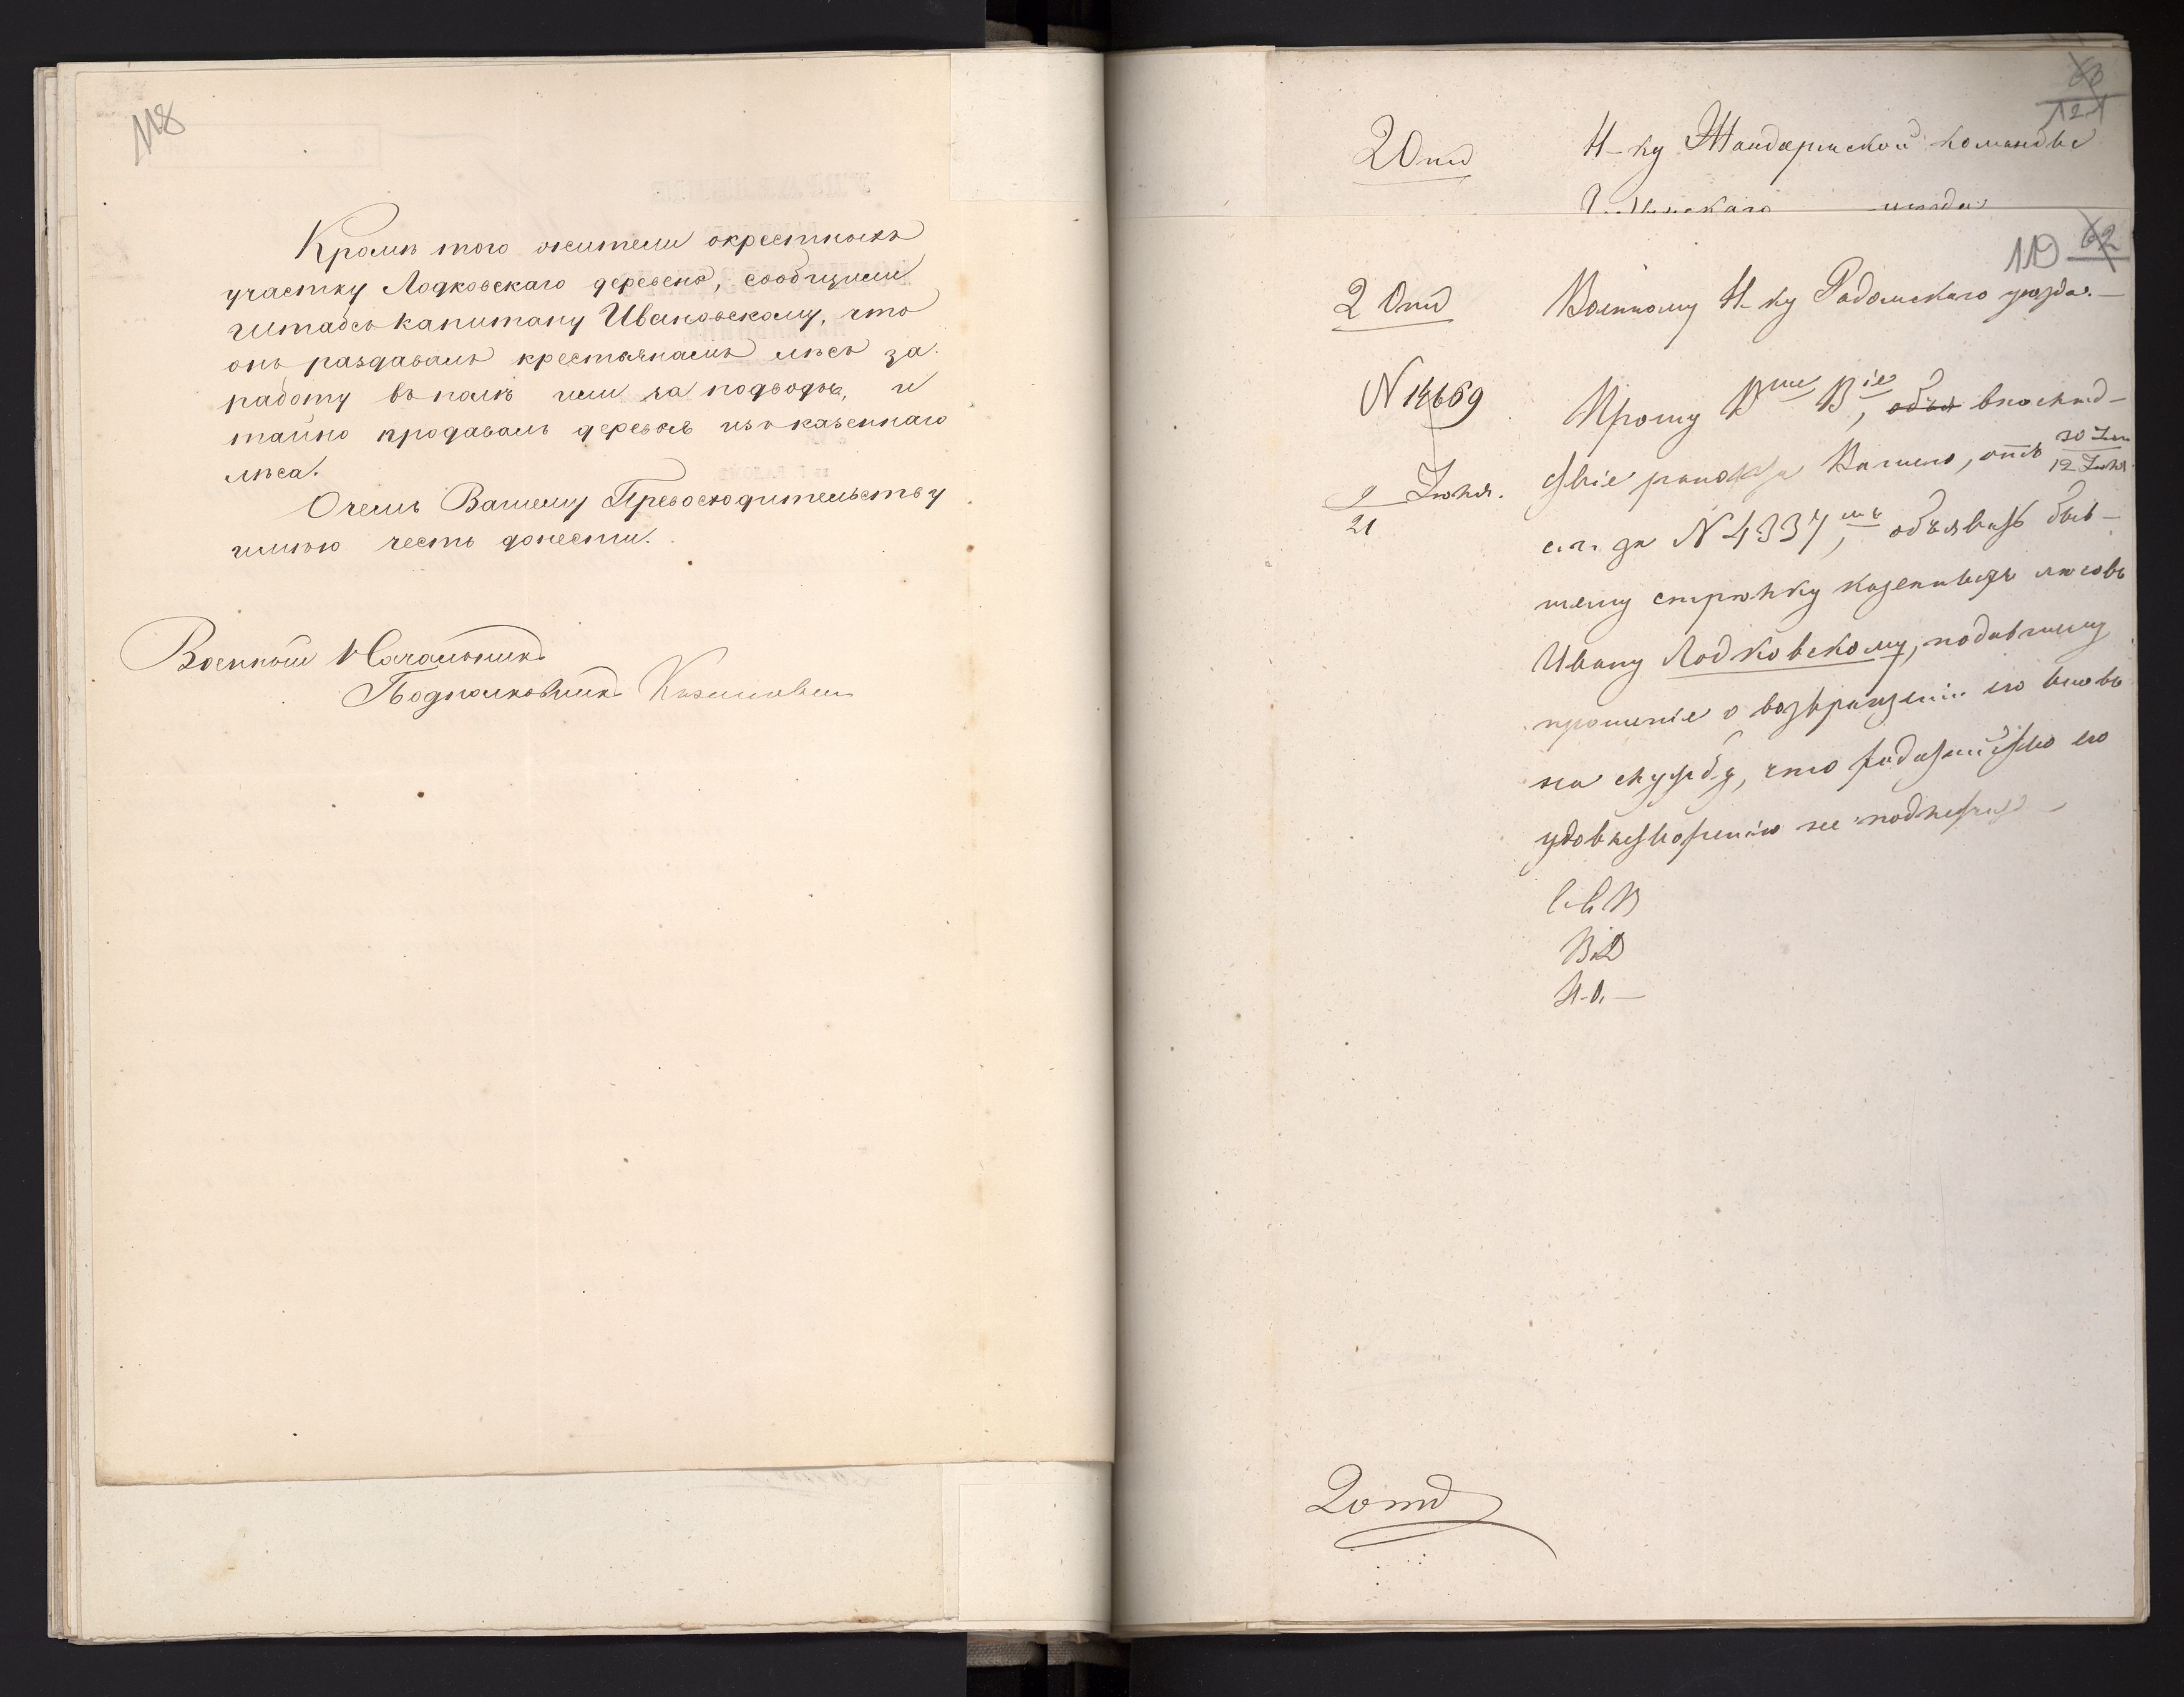 118
Кромѣ того жители окрестныхъ
участку Лодковскаго деревень, сообщили
штабсъ капитану Ивановскому, что
онъ раздавалъ крестьянамъ лѣсъ за
работу въ полѣ или за подводы, и
тайно продавалъ деревья изъ казеннаго
лѣса.
О чемъ Вашему Превосходительству
имѣю честь донести.
Военный Начальникъ
Подполковникъ
63
121
2 Отд
Н-ку Жандармской команды
уѣзда
119 62
2 Отд
Военному Н-ку Радомскаго уѣзда.—
N 14669
9 Іюля.
21
Прошу Вше Віе, объя впослѣд-
ствіе рапорта Вашего, отъ 30 Іюн
12 Іюля
с. г. за N 4337мъ, объявить быв-
шему стрѣлку казенныхъ лѣсовъ
Ивану Лодковскому, подавшему
прошеніе о возвращеніи его вновь
на службу, что ходатайство его
удовлетворенію не подлежитъ
В.Д
Н.О.—
2 отд